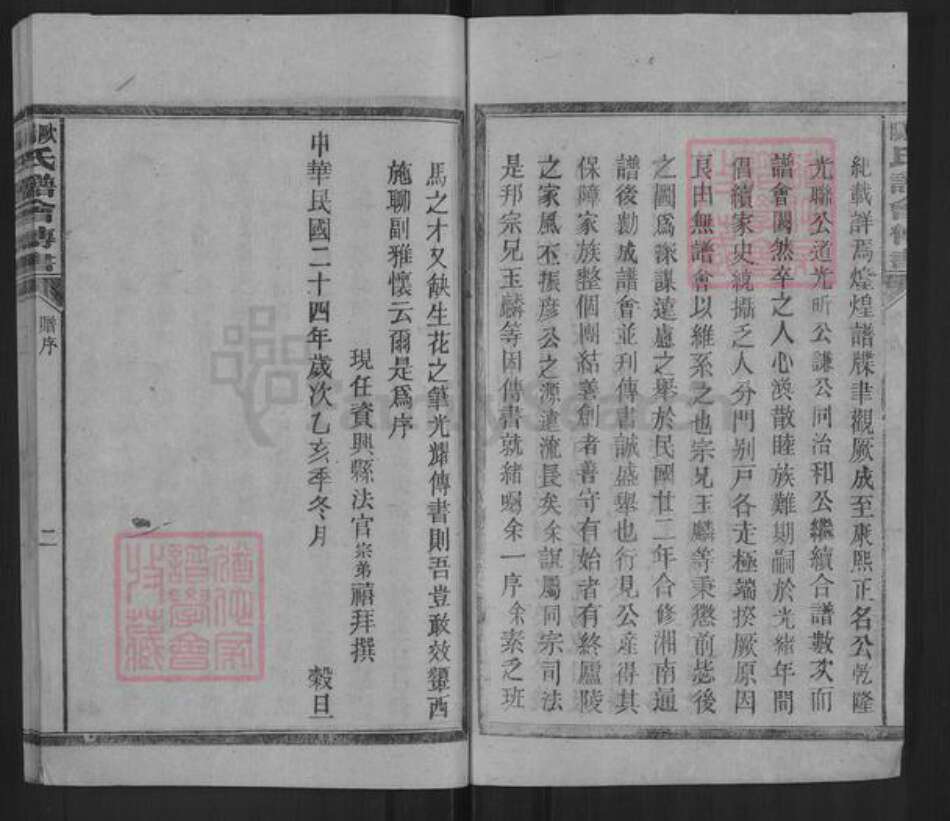 紀載詳焉煌煌譜牒聿觀厥成至康熙正名公乾隆
光聯公道光昕公謙公同治和公繼續合譜數次而
譜會闃然卒之人心渙散睦族難期嗣於光緒年間
倡續家史統攝乏人分門別戶各走極端揆厥原因
良由無譜會以維系之也宗兄玉麟等秉懲前毖後
之圖爲深謀遠慮之舉於民國廿二年合修湘南通
譜後勸成譜會並刋傳書誠盛舉也行見公產得其
保障家族整個團結善創者善守有始者有終廬陵
之家風丕振彥公之源遠流長矣余謬屬同宗司法
是邦宗兄玉麟等因傳書就緒囑余一序余素乏班
氏譜會傳書
馬之才又缺生花之筆光耀傳書則吾豈敢效顰西
施聊副雅懷云爾是爲序
現任資興縣法官宗弟禧拜撰
中華民國二十四年歲次乙亥季冬月 穀旦
歐氏譜會傳書
贈序
二